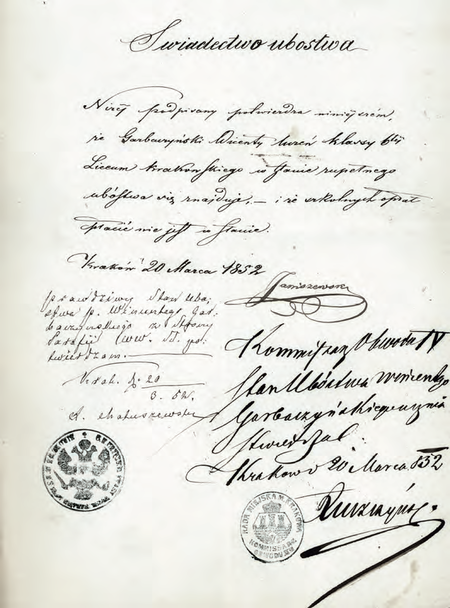 Świadectwo ubóstwa
Niżej podpisany potwierdza niniejszém,
że Garbaczyński Wincenty uczeń klassy 6téj
Liceum Krakowskiego w stanie zupełnego
ubóstwa się znajduje, — i że szkolnych opłat
płacić nie jest w stanie.
Kraków 20 Marca 1852
Janiszewski
Prawdziwy Stan Ubó-
stwa p. Wincentego Gar-
baczyńskiego z
Parafii WW. SS. po-
twierdzam.
Krak. d. 20
3. 52.
Matuszewski
Kommissarz Obwodu IV
Stan Ubóstwa Wincentego
Garbaczyńskiego ucznia
stwierdzał
Kraków 20 Marca 852
RADA MIEJSKA M. KRAKOWA
KOMMISSARZ